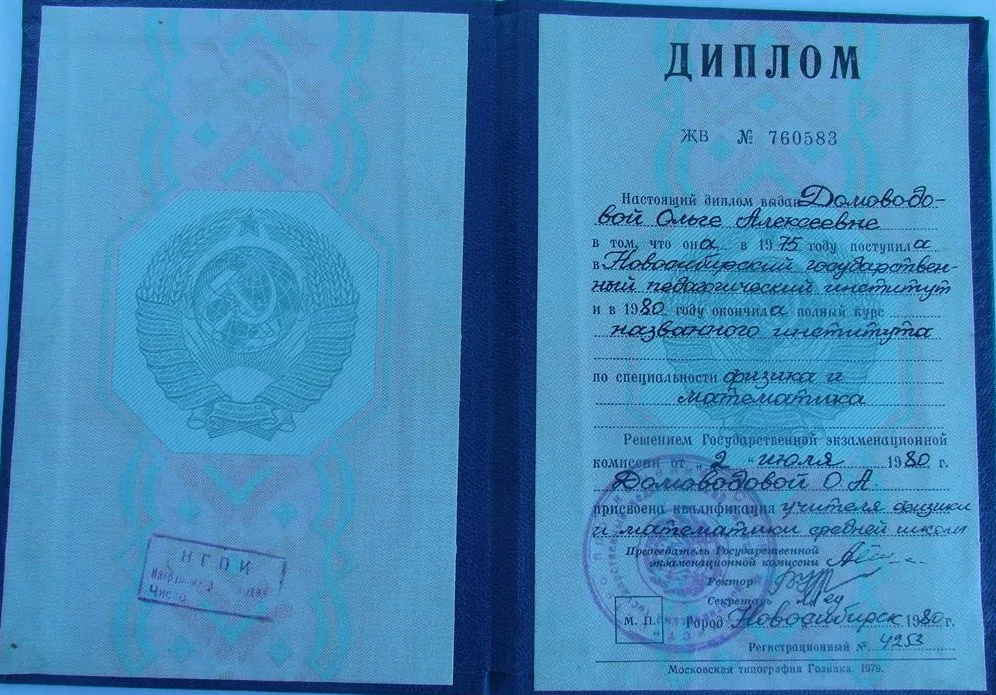 НГПИ
Число
ДИПЛОМ
ЖВ № 760583
Настоящий диплом выдан Домоводо-
вой Ольге Алексеевне
в том, что она в 1975 году поступила
в Новосибирский государствен-
ный педагогический институт
и в 1980 году окончила полный курс
названного института
по специальности физика и
математика
Решением Государственной экзаменационной
комиссии от „2“ июля 1980 г.
Домоводовой О. А.
присвоена квалификация учителя физики
и математики средней школы
Председатель Государственной
экзаменационной комиссии
Ректор
Секретарь
М. П. Город Новосибирск 1980 г.
Регистрационный № 4253
Московская типография Гознака. 1979.